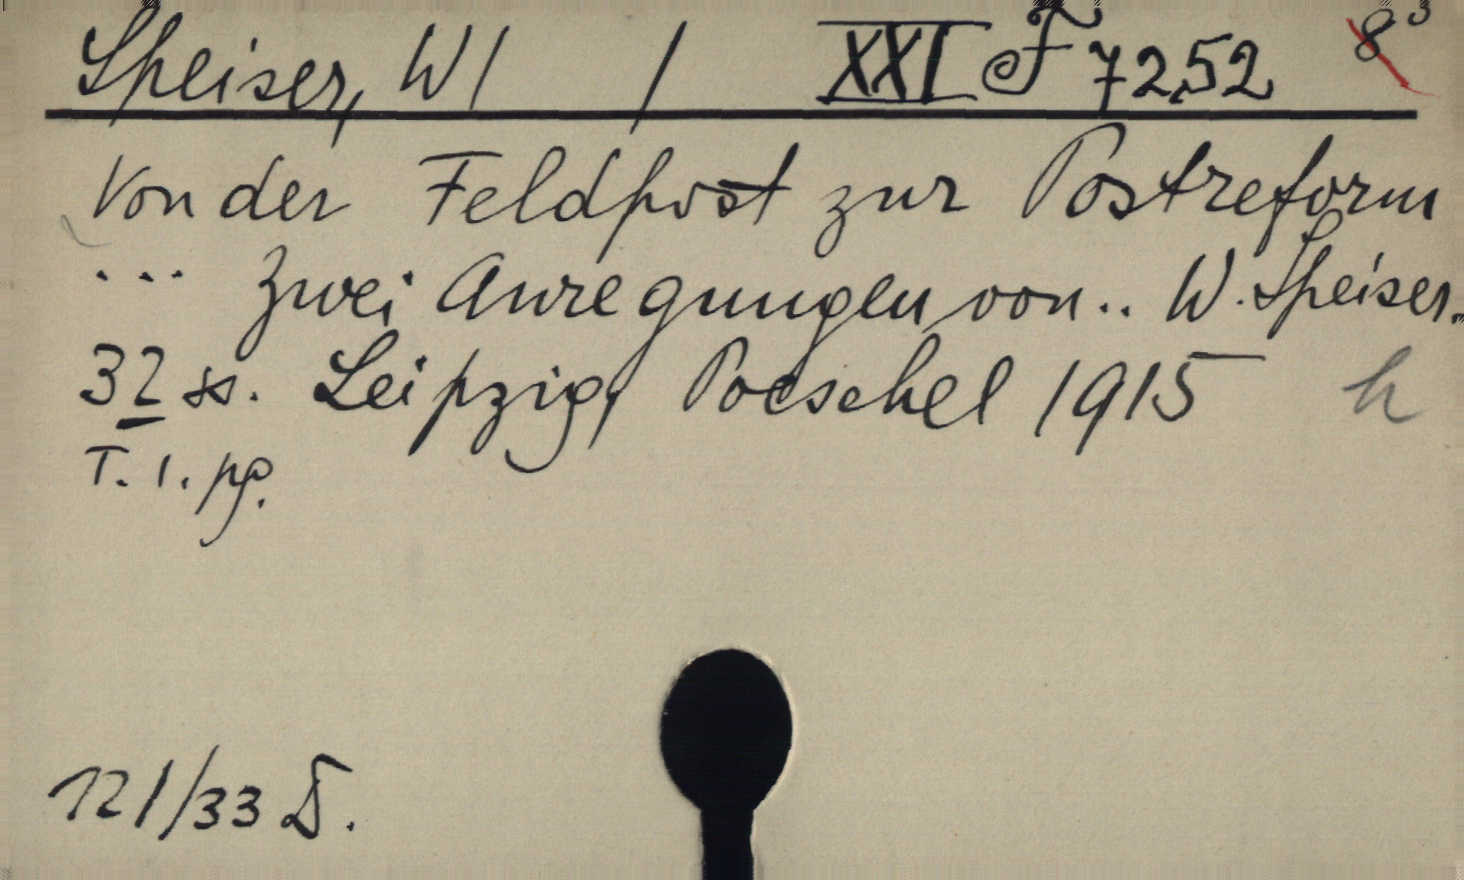 Speiser, W/ / XXI F 7252 8°
Von der Feldpost zur Postreform
... Zwei Anregungen von.. W. Speiser.
32 ss. Leipzig, Poeschel 1915 h
T. 1. pg.
121/33 D.